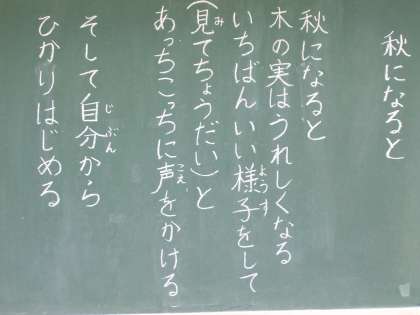 秋になると
秋になると
木の実はうれしくなる
いちばんいい様子をして
(見てちょうだい)と
あっちこっちに声をかける
そして自分から
ひかりはじめる